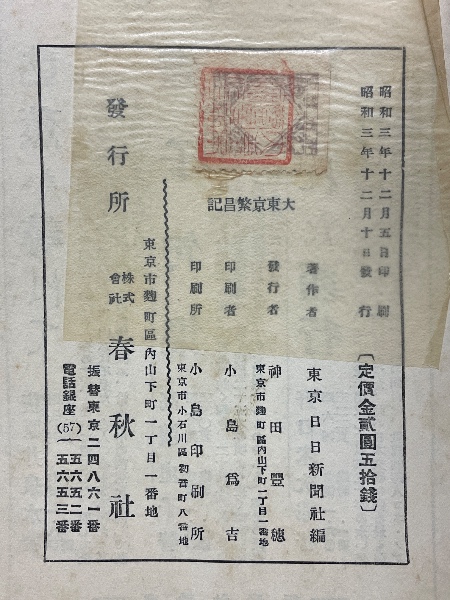 昭和三年十二月五日印刷
昭和三年十二月十日發行
〔定價金貳圓五拾錢〕
大東京繁昌記
著作者 東京日日新聞社編
發行者 神田豐穗
東京市麴町區內山下町一丁目一番地
印刷者 小島爲吉
印刷所 小島印刷所
東京市小石川區初音町八番地
發行所
東京市麴町區內山下町一丁目一番地
株式會社 春秋社
振替東京二四八六一番
電話銀座(57)五六五二番
五六五三番